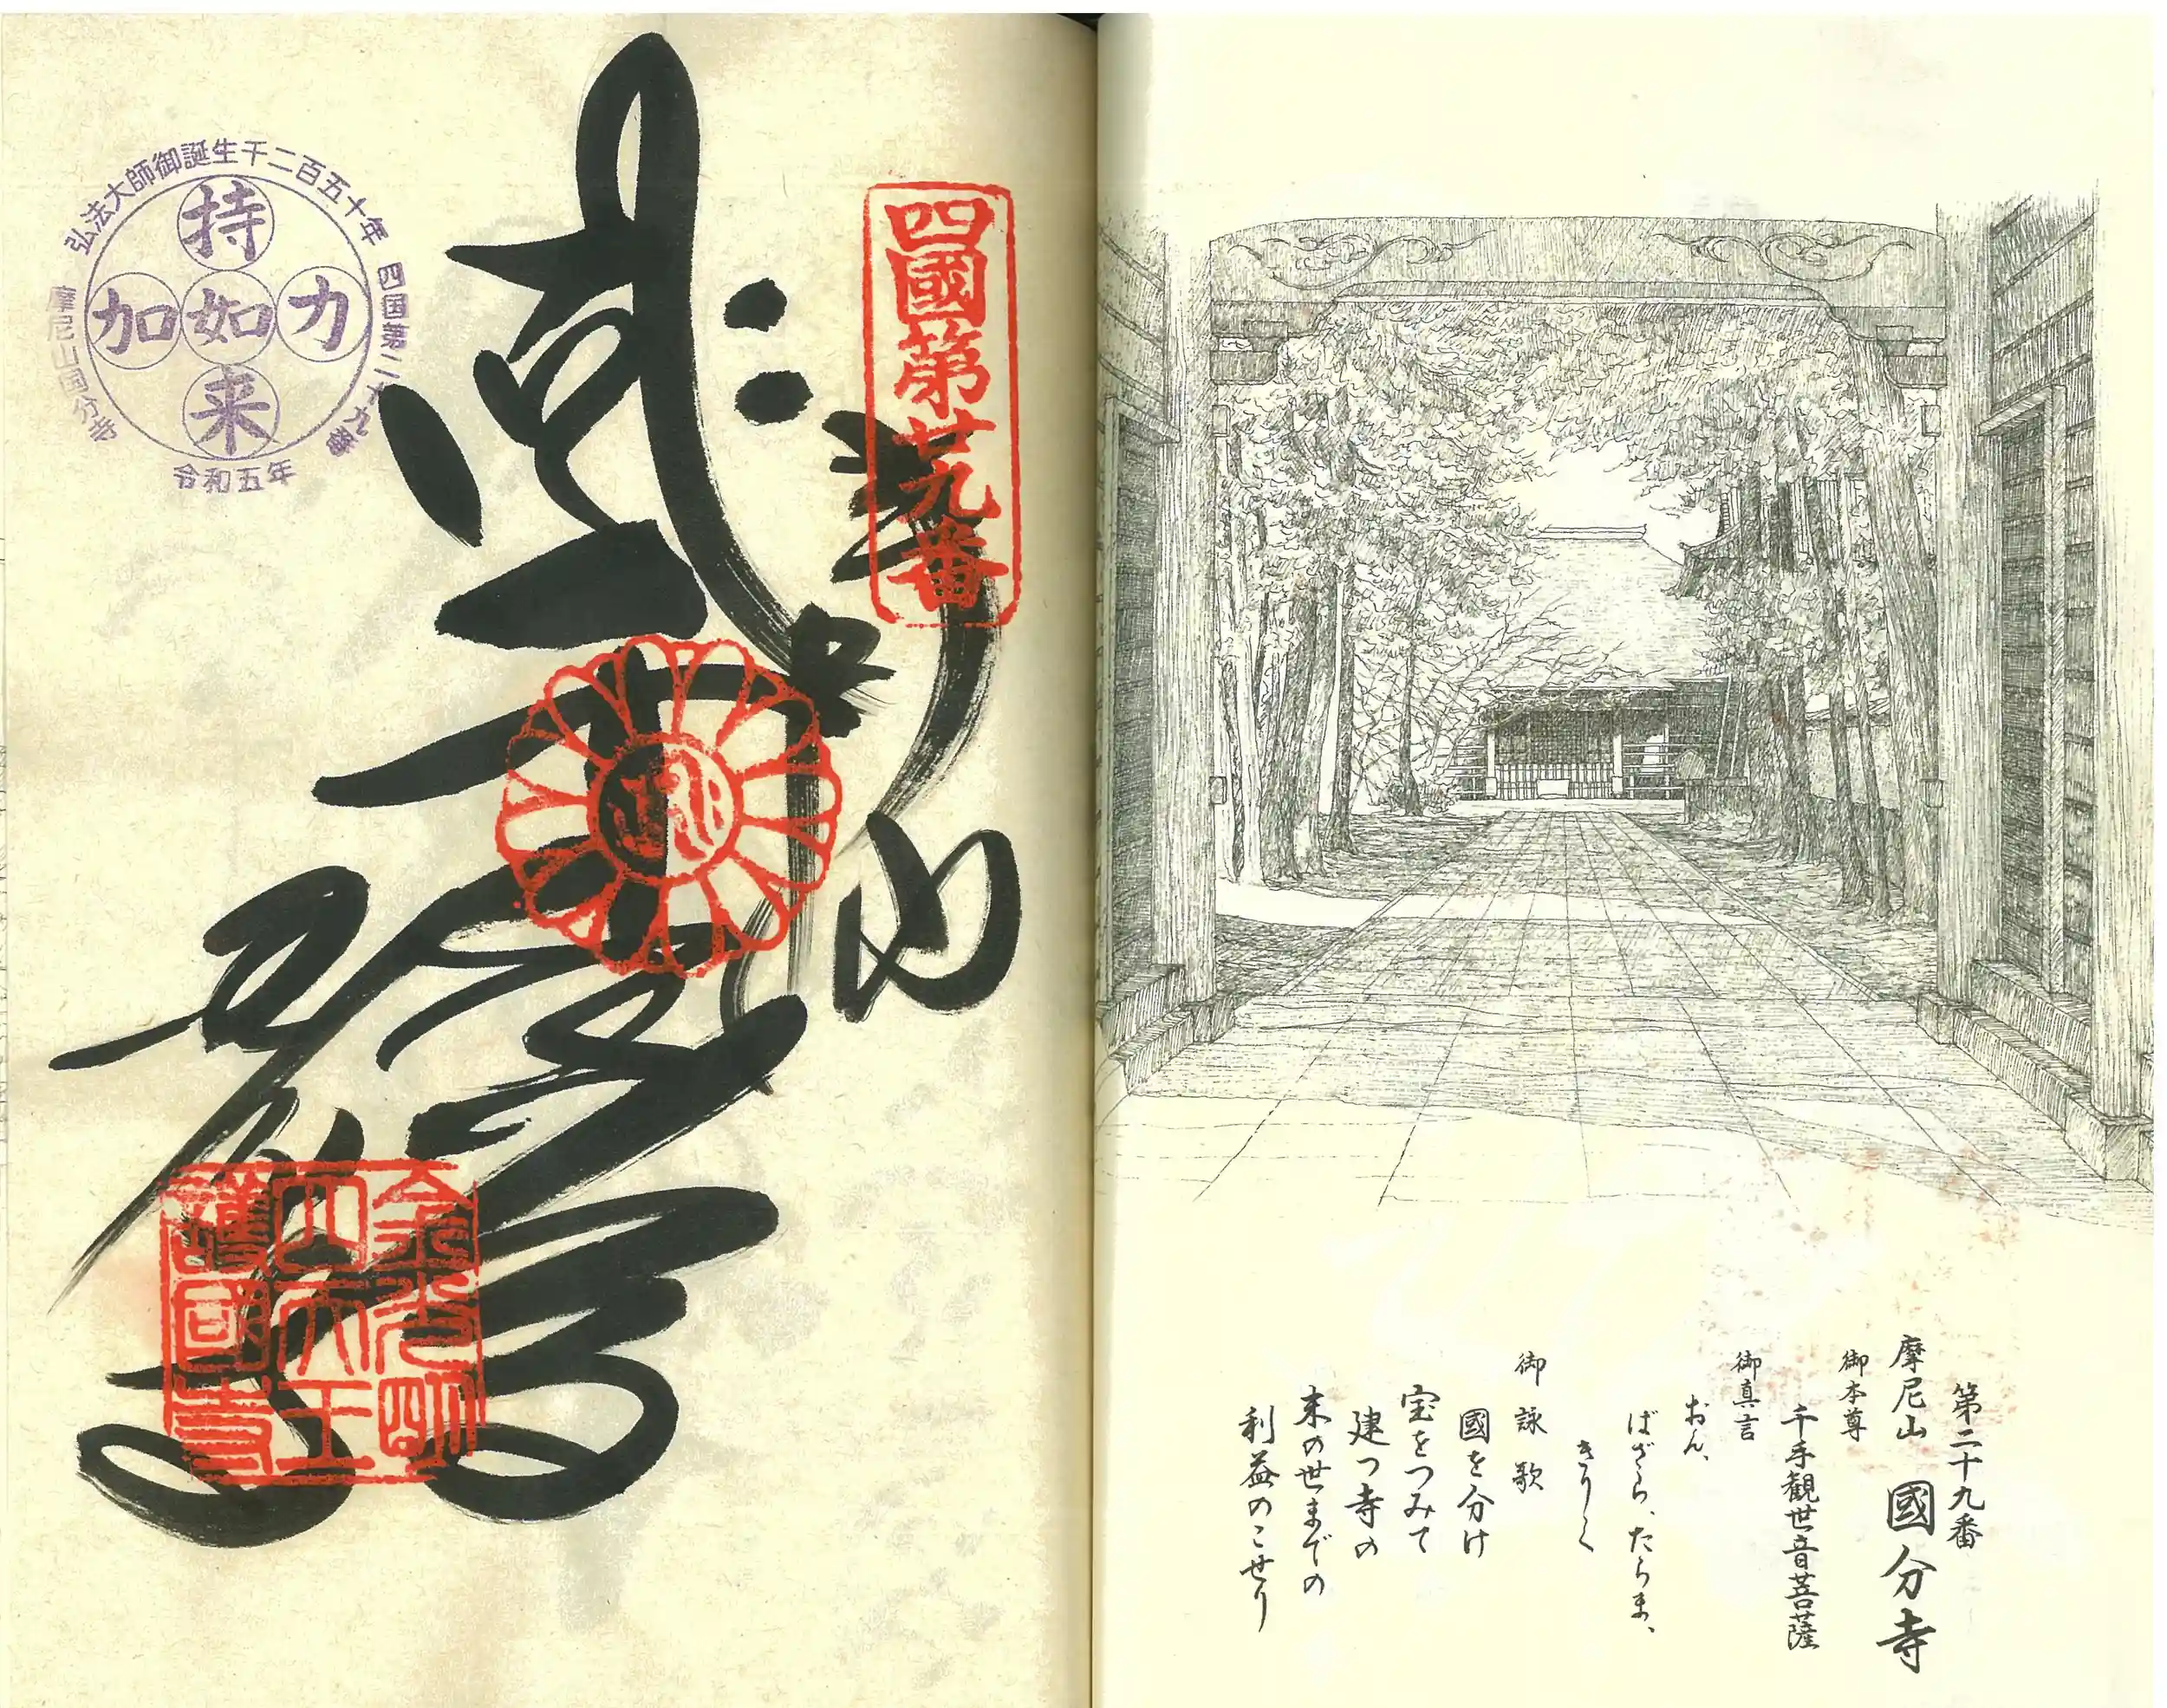 第二十九番
摩尼山 國分寺
御本尊
千手観世音菩薩
御真言
おん、
ばざら、たらま、
きりく
御詠歌
國を分け
宝をつみて
建つ寺の
末の世までの
利益のこせり
四國第廿九番
奉
山
弘法大師御誕生千二百五十年
四国第二十九番
摩尼山国分寺
令和五年
持
加如力
来
金光明
四天王
護國寺